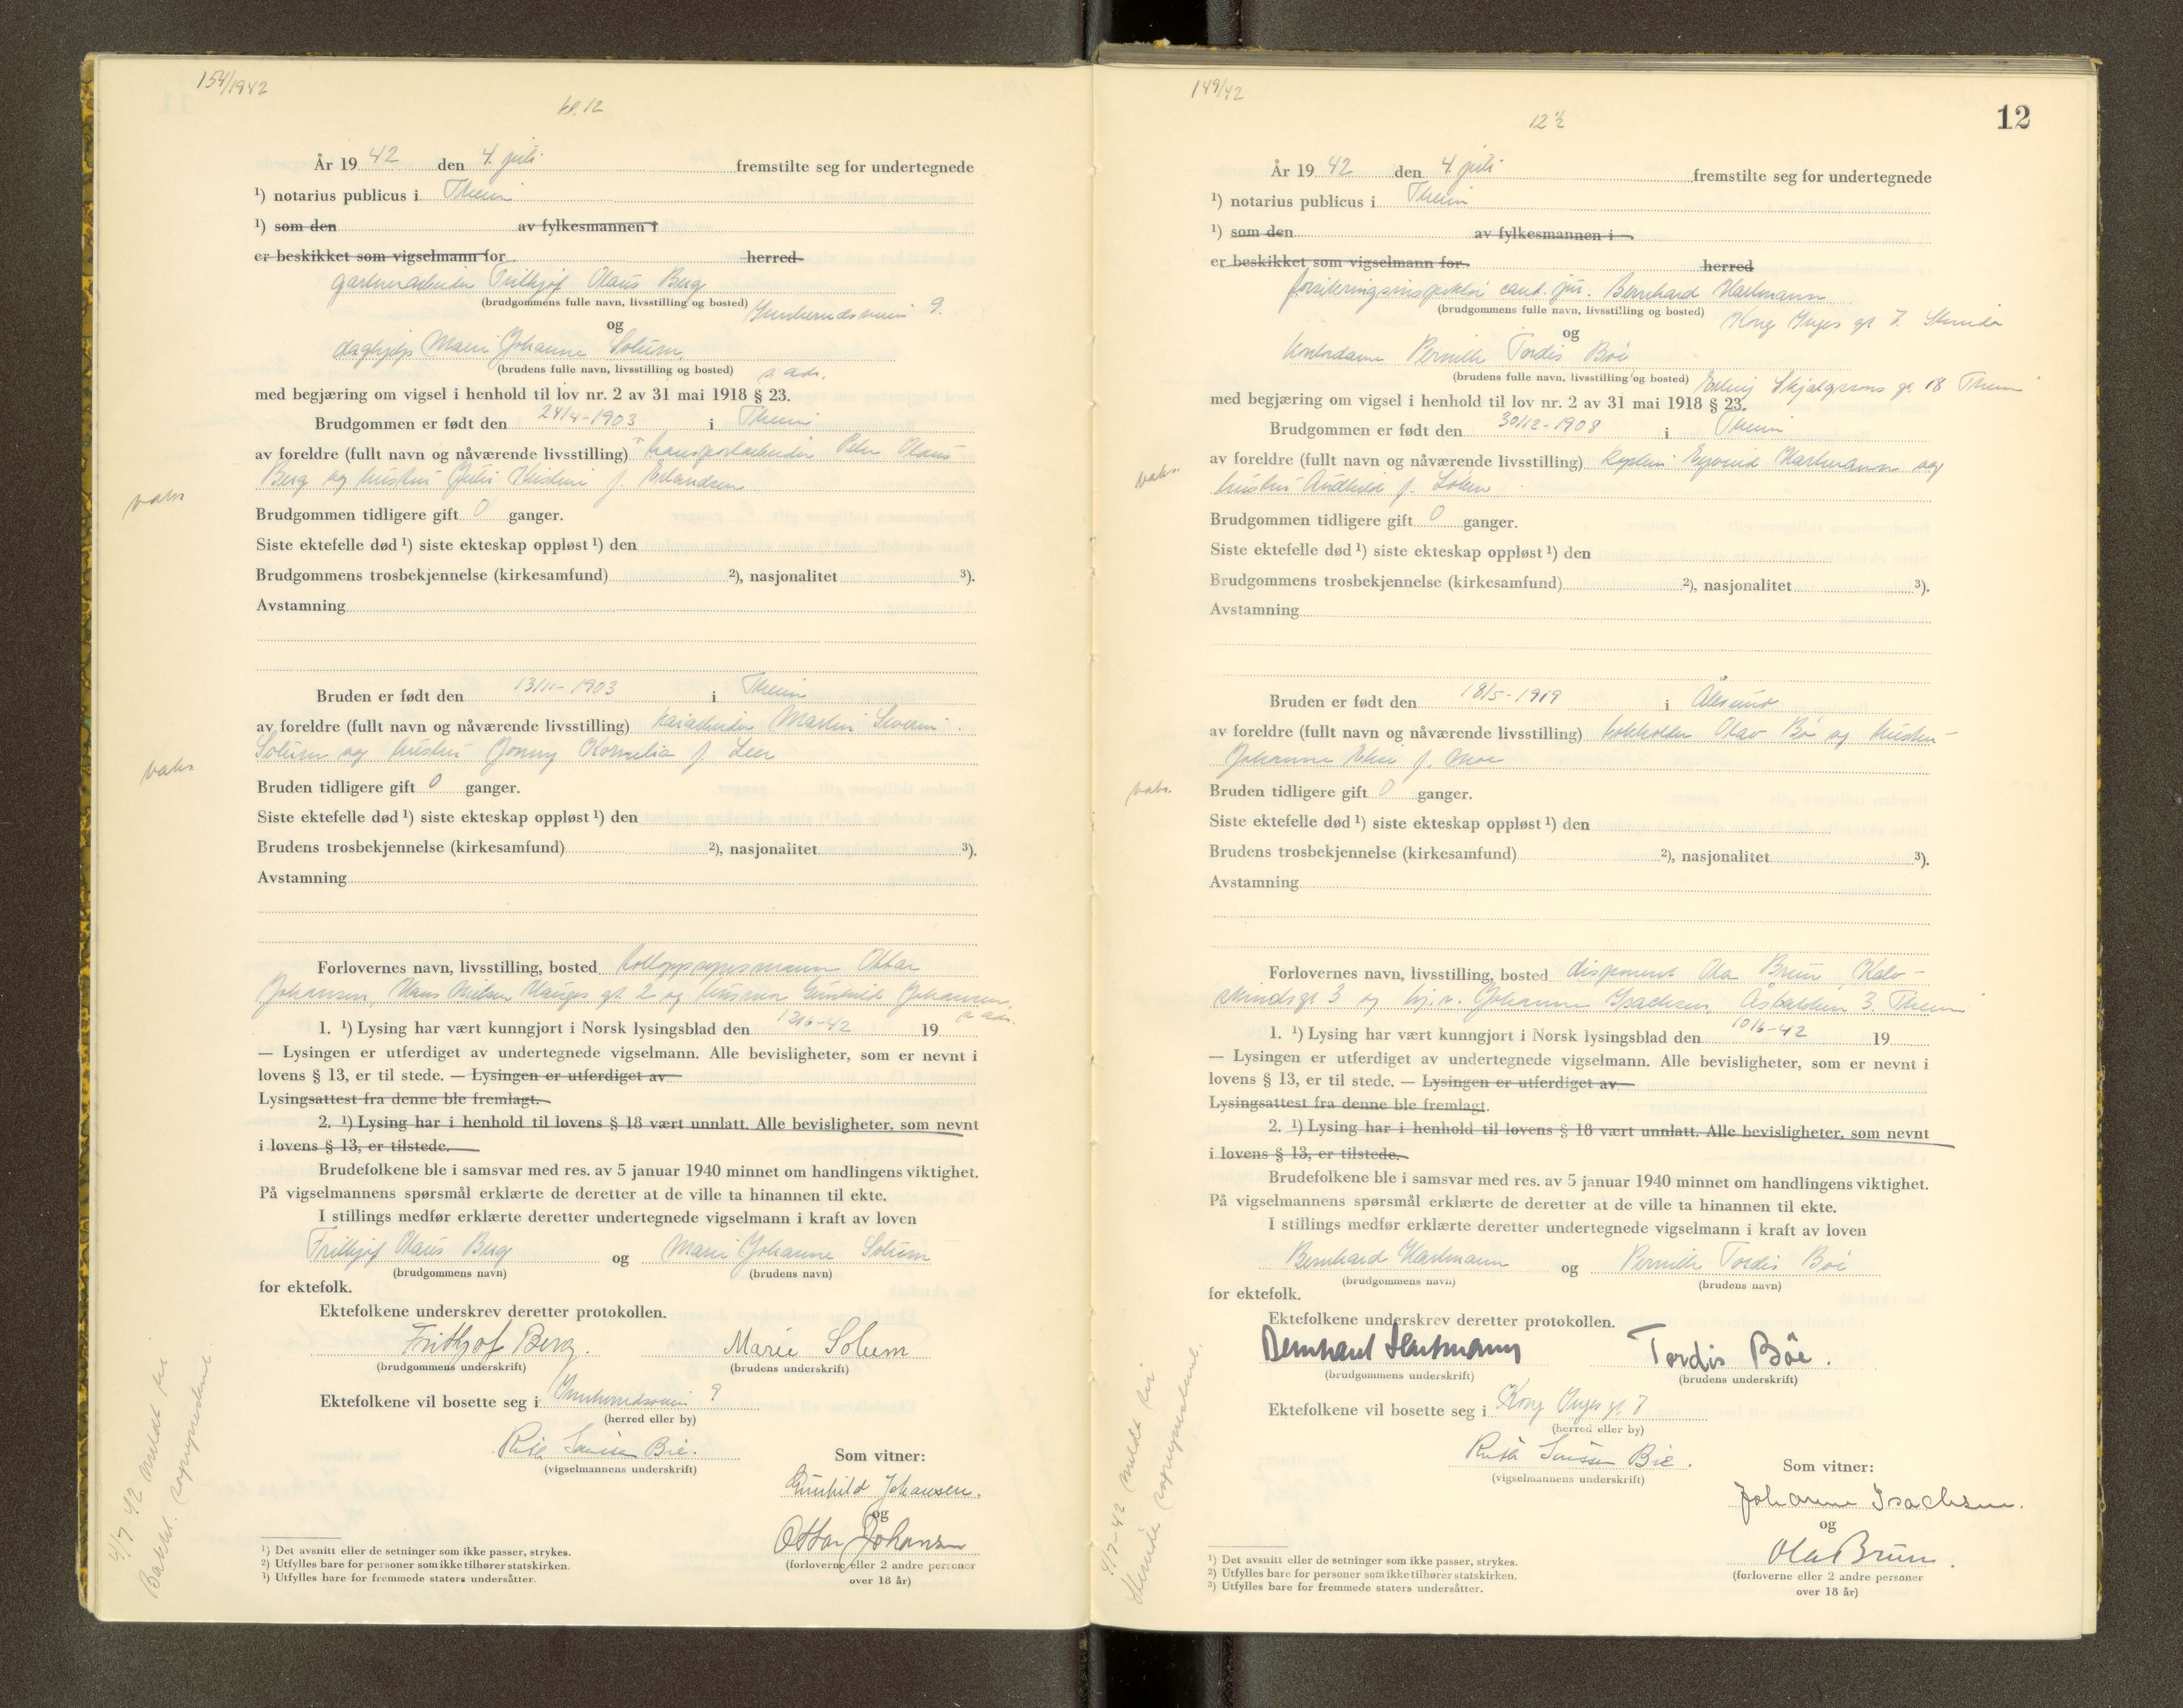 154/1942
kl. 12
År 19 42 den 4. juli fremstilte seg for undertegnede
¹) notarius publicus i Theim
¹) som den av fylkesmannen i
er beskikket som vigselmann for herred
gartnerarbeider Frithjof Olaus Berg
(brudgommens fulle navn, livsstilling og bosted) Innherredsveien 9.
og
daghjelp Marie Johanne Solum
(brudens fulle navn, livsstilling og bosted) s. adr.
med begjæring om vigsel i henhold til lov nr. 2 av 31 mai 1918 § 23.
Brudgommen er født den 24/4-1903 i Theim
av foreldre (fullt navn og nåværende livsstilling) transportarbeider Peter Olaus
Berg og hustru Juli Kristine f. Erlandsen
vaks.
Brudgommen tidligere gift 0 ganger.
Siste ektefelle død ¹) siste ekteskap oppløst ¹) den
Brudgommens trosbekjennelse (kirkesamfund) ²), nasjonalitet ³).
Avstamning
Bruden er født den 13/11-1903 i Theim
av foreldre (fullt navn og nåværende livsstilling) kaiarbeider Martin Severin
Solum og hustru Jonny Kornelia f. Leer
vaks.
Bruden tidligere gift 0 ganger.
Siste ektefelle død ¹) siste ekteskap oppløst ¹) den
Brudens trosbekjennelse (kirkesamfund) ²), nasjonalitet ³).
Avstamning
Forlovernes navn, livsstilling, bosted tolloppsynsmann Ottar
Johansen, Hans Nielsen Hauges gt. 2 og husmor Gunhild Johansen,
s. adr.
1. ¹) Lysing har vært kunngjort i Norsk lysingsblad den 12/6-42 19
— Lysingen er utferdiget av undertegnede vigselmann. Alle bevisligheter, som er nevnt i
lovens § 13, er til stede. — Lysingen er utferdiget av
Lysingsattest fra denne ble fremlagt.
2. ¹) Lysing har i henhold til lovens § 18 vært unnlatt. Alle bevisligheter, som nevnt
i lovens § 13, er tilstede.
Brudefolkene ble i samsvar med res. av 5 januar 1940 minnet om handlingens viktighet.
På vigselmannens spørsmål erklærte de deretter at de ville ta hinannen til ekte.
I stillings medfør erklærte deretter undertegnede vigselmann i kraft av loven
Frithjof Olaus Berg og Marie Johanne Solum
(brudgommens navn) (brudens navn)
for ektefolk.
Ektefolkene underskrev deretter protokollen.
Frithjof Berg. Marie Solum
(brudgommens underskrift) (brudens underskrift)
Ektefolkene vil bosette seg i Innherredsveien 9
(herred eller by)
Ruth Sanssen Bie.
(vigselmannens underskrift)
Som vitner:
Gunhild Johansen.
og
Ottar Johansen
(forloverne eller 2 andre personer
over 18 år)
¹) Det avsnitt eller de setninger som ikke passer, strykes.
²) Utfylles bare for personer som ikke tilhører statskirken.
³) Utfylles bare for fremmede staters undersåtter.
4/7 42 meldt til
Bakkl. sogneprest.
149/42
12 ½
12
År 19 42 den 4 juli fremstilte seg for undertegnede
¹) notarius publicus i Theim
¹) som den av fylkesmannen i
er beskikket som vigselmann for herred
forsikringsinspektør cand. jur. Bernhard Hartmann
(brudgommens fulle navn, livsstilling og bosted) Kong Inges gt 7. Strinda
og
kontordame Pernille Tordis Böe
(brudens fulle navn, livsstilling og bosted) Erling Skjalgssons gt 18 Theim
med begjæring om vigsel i henhold til lov nr. 2 av 31 mai 1918 § 23.
Brudgommen er født den 30/12-1908 i Theim
av foreldre (fullt navn og nåværende livsstilling) kaptein Eyvind Hartmann og
hustru Andhild f. Löken
vaks.
Brudgommen tidligere gift 0 ganger.
Siste ektefelle død ¹) siste ekteskap oppløst ¹) den
Brudgommens trosbekjennelse (kirkesamfund) ²), nasjonalitet ³).
Avstamning
Bruden er født den 18/5-1919 i Ålesund
av foreldre (fullt navn og nåværende livsstilling) bokholder Olav Böe og hustru
Johanne Elise f. Moe
vaks.
Bruden tidligere gift 0 ganger.
Siste ektefelle død ¹) siste ekteskap oppløst ¹) den
Brudens trosbekjennelse (kirkesamfund) ²), nasjonalitet ³).
Avstamning
Forlovernes navn, livsstilling, bosted disponent Ola Bruun, Kalv-
skindsgt 3 og hj. v. Johanne Isachsen, Åsbakken 3. Theim
1. ¹) Lysing har vært kunngjort i Norsk lysingsblad den 10/6-42 19
— Lysingen er utferdiget av undertegnede vigselmann. Alle bevisligheter, som er nevnt i
lovens § 13, er til stede. — Lysingen er utferdiget av
Lysingsattest fra denne ble fremlagt.
2. ¹) Lysing har i henhold til lovens § 18 vært unnlatt. Alle bevisligheter, som nevnt
i lovens § 13, er tilstede.
Brudefolkene ble i samsvar med res. av 5 januar 1940 minnet om handlingens viktighet.
På vigselmannens spørsmål erklærte de deretter at de ville ta hinannen til ekte.
I stillings medfør erklærte deretter undertegnede vigselmann i kraft av loven
Bernhard Hartmann og Pernille Tordis Böe
(brudgommens navn) (brudens navn)
for ektefolk.
Ektefolkene underskrev deretter protokollen.
Bernhard Hartmann Tordis Böe.
(brudgommens underskrift) (brudens underskrift)
Ektefolkene vil bosette seg i Kong Inges gt. 7
(herred eller by)
Ruth Sanssen Bie.
(vigselmannens underskrift)
Som vitner:
Johanne Isachsen.
og
Ola Bruun.
(forloverne eller 2 andre personer
over 18 år)
¹) Det avsnitt eller de setninger som ikke passer, strykes.
²) Utfylles bare for personer som ikke tilhører statskirken.
³) Utfylles bare for fremmede staters undersåtter.
4/7-42 meldt til
Strinda sogneprest.